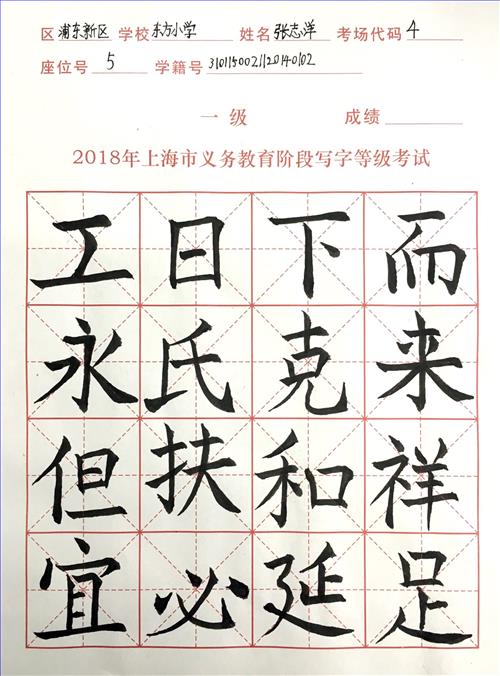 区 浦东新区 学校 东方小学 姓名 张志洋 考场代码 4
座位号 5 学籍号 3101150021120140102
一级 成绩
2018年上海市义务教育阶段写字等级考试
工日下而
永氏克来
但扶和祥
宜必延足